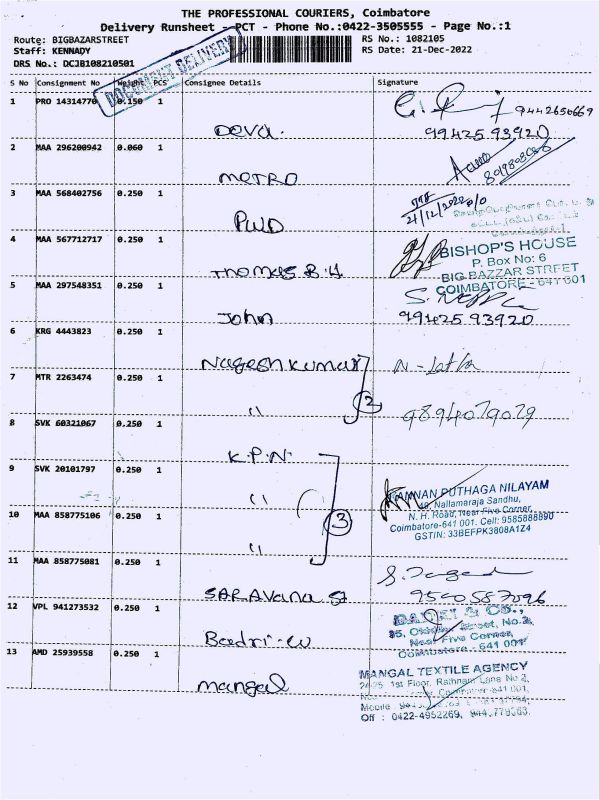 THE PROFESSIONAL COURIERS, Coimbatore
Delivery Runsheet - PCT - Phone No.:0422-3505555 - Page No.:1
Route: BIGBAZARSTREET
RS No.: 1082105
Staff: KENNADY
RS Date: 21-Dec-2022
DRS No.: DCJB108210501
DOCUMENT DELIVERY
S No Consignment No Weight PCS Consignee Details Signature
1 PRO 14314770 0.150 1
9442650669
Deva.
99425 93920
2 MAA 296200942 0.060 1
METRO
3 MAA 568402756 0.250 1
21/12/2022
PWD
4 MAA 567712717 0.250 1
BISHOP'S HOUSE
P. Box No: 6
BIG BAZZAR STREET
COIMBATORE - 641 001
Thomas B.H
5 MAA 297548351 0.250 1
John
99425 93920
6 KRG 4443823 0.250 1
Nagesh Kumar
N - Latha
7 MTR 2263474 0.250 1
" 2
9894079079
8 SVK 60321067 0.250 1
K.P.N.
9 SVK 20101797 0.250 1
" 3
MANNAN PUTHAGA NILAYAM
48, Nallamaraja Sandhu,
N. H. Road, Near Five Corner,
Coimbatore-641 001. Cell: 9585888890
GSTIN: 33BEFPK3808A1Z4
10 MAA 858775106 0.250 1
"
11 MAA 858775081 0.250 1
SARAVANA St
9500587096
12 VPL 941273532 0.250 1
& CO.,
Street, No.2,
Near Five Corner,
Coimbatore - 641 001
Badri - w
13 AMD 25939558 0.250 1
MANGAL TEXTILE AGENCY
24-25 1st Floor, Rathnam Lane No 2,
Coimbatore 641 001,
Mobile
Off : 0422-4952269,
mangal